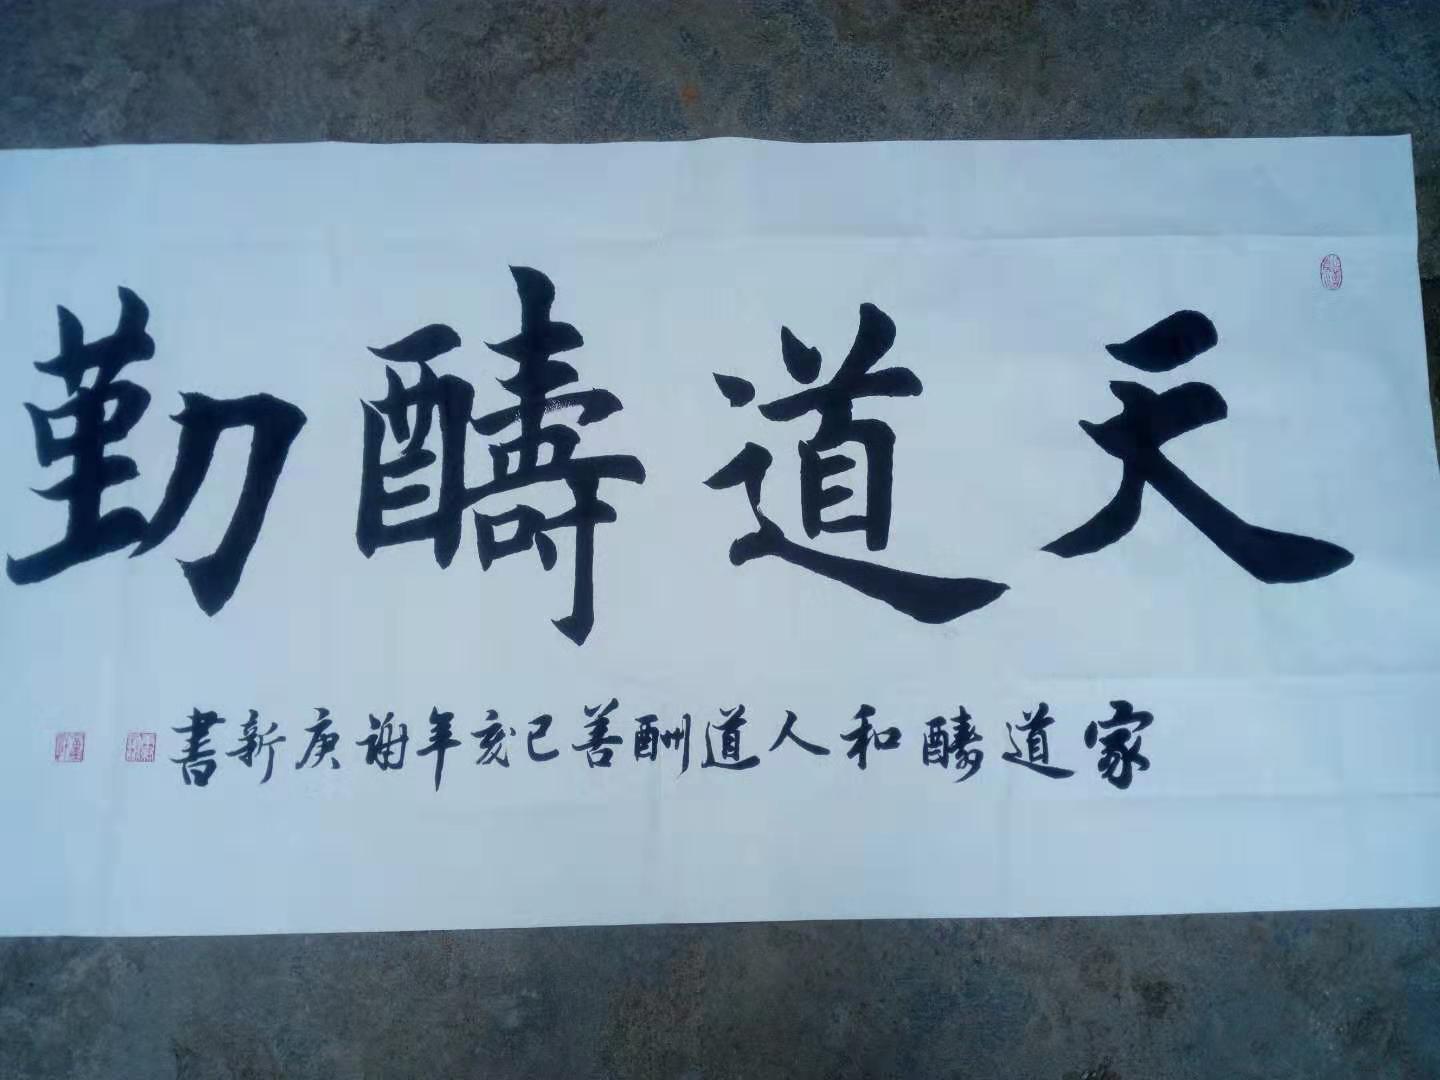 天道酬勤
家道酬和人道酬善己亥年謝庚新書